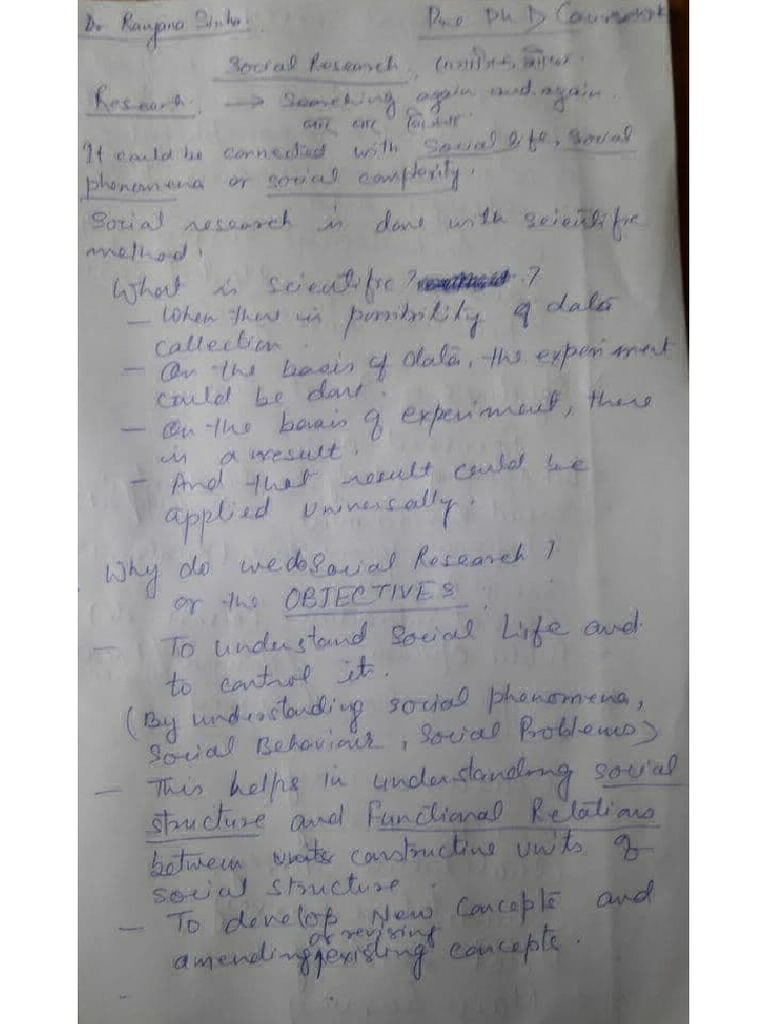 Dr Ranjana Sinha. Pre Ph D Coursework
Social Research,
Research. → Searching again and again.
बार बार
It could be connected with Social life, social
phenomena or social complexity.
Social research is done with scientific
method.
What is scientific? ?
— When there is possibility of data
collection
— On the basis of data, the experiment
could be done.
— On the basis of experiment, there
is a result.
— And that result could be
applied universally.
Why do we do Social Research?
or the OBJECTIVES
— To understand Social Life and
to control it.
(By understanding social phenomena,
Social Behaviour, Social Problems)
— This helps in understanding social
structure and Functional Relations
between units constructive units of
social structure.
— To develop New Concepts and
or revising
amending existing concepts.